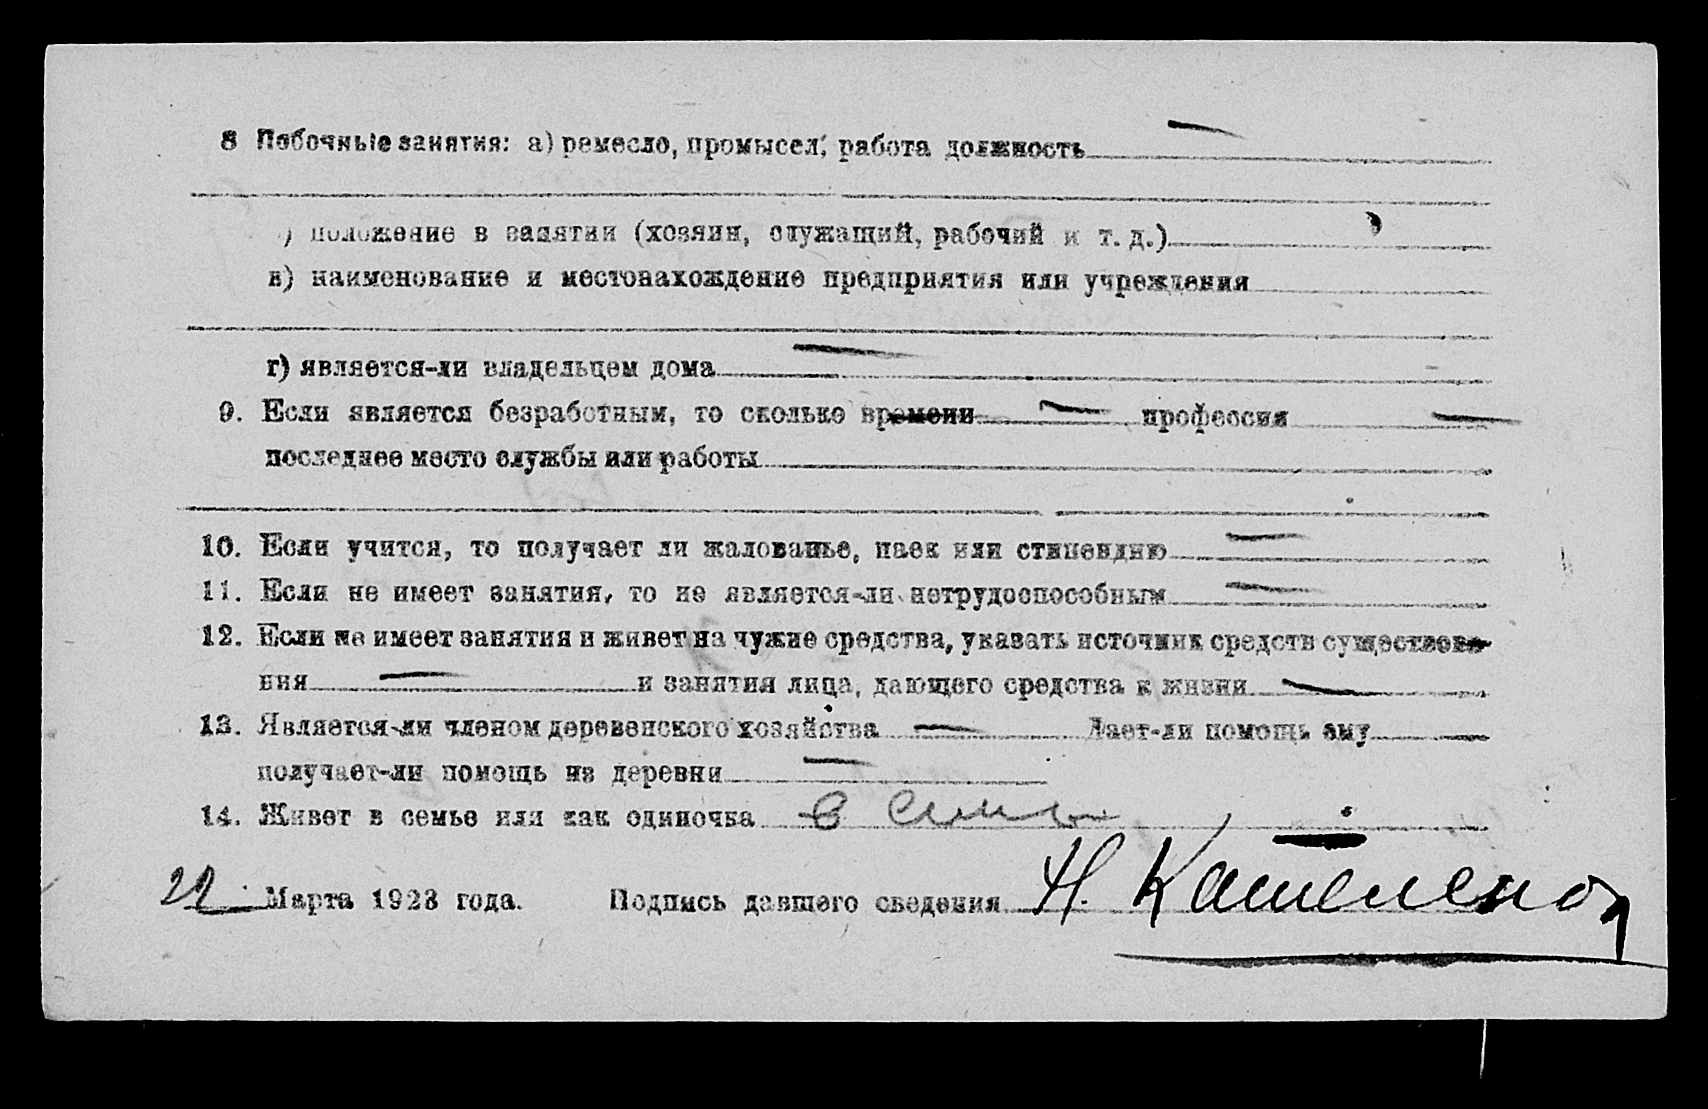 8 Побочные занятия: а) ремесло, промысел, работа должность
) положение в занятии (хозяин, служащий, рабочий и т. д.)
в) наименование и местонахождение предприятия или учреждения
г) является-ли владельцем дома —
9. Если является безработным, то сколько времени — профессия —
последнее место службы или работы
10. Если учится, то получает ли жалованье, паек или стипендию —
11. Если не имеет занятия, то не является-ли нетрудоспособным —
12. Если не имеет занятия и живет на чужие средства, указать источник средств существова-
ния — и занятия лица, дающего средства к жизни —
13. Является-ли членом деревенского хозяйства — Дает-ли помощь ему —
получает-ли помощь из деревни —
14. Живет в семье или как одиночка в семье
Марта 1923 года. Подпись давшего сведения Н.